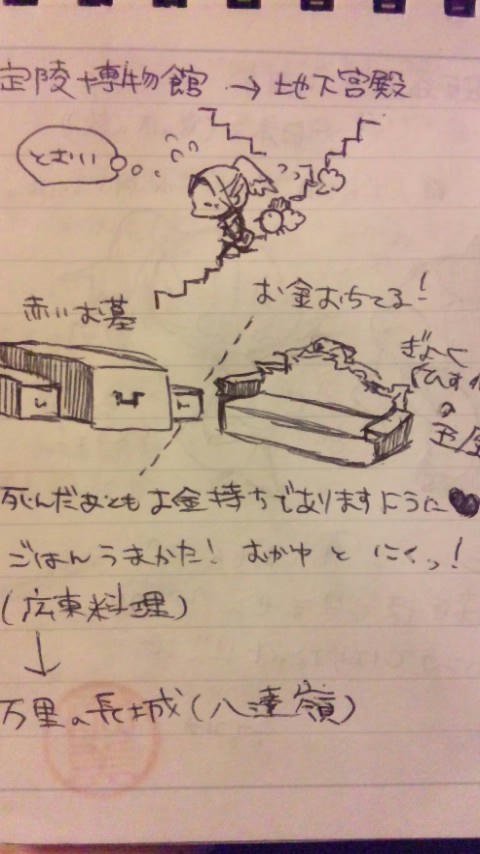 定陵+博物館 → 地下宮殿
とおい
赤いお墓
お金おちてる!
ぎょく
(ひすい
の
玉座
死んだあともお金持ちでありますように♥
ごはんうまかた! おかゆ と にくっ!
(広東料理)
↓
万里の長城(八達嶺)